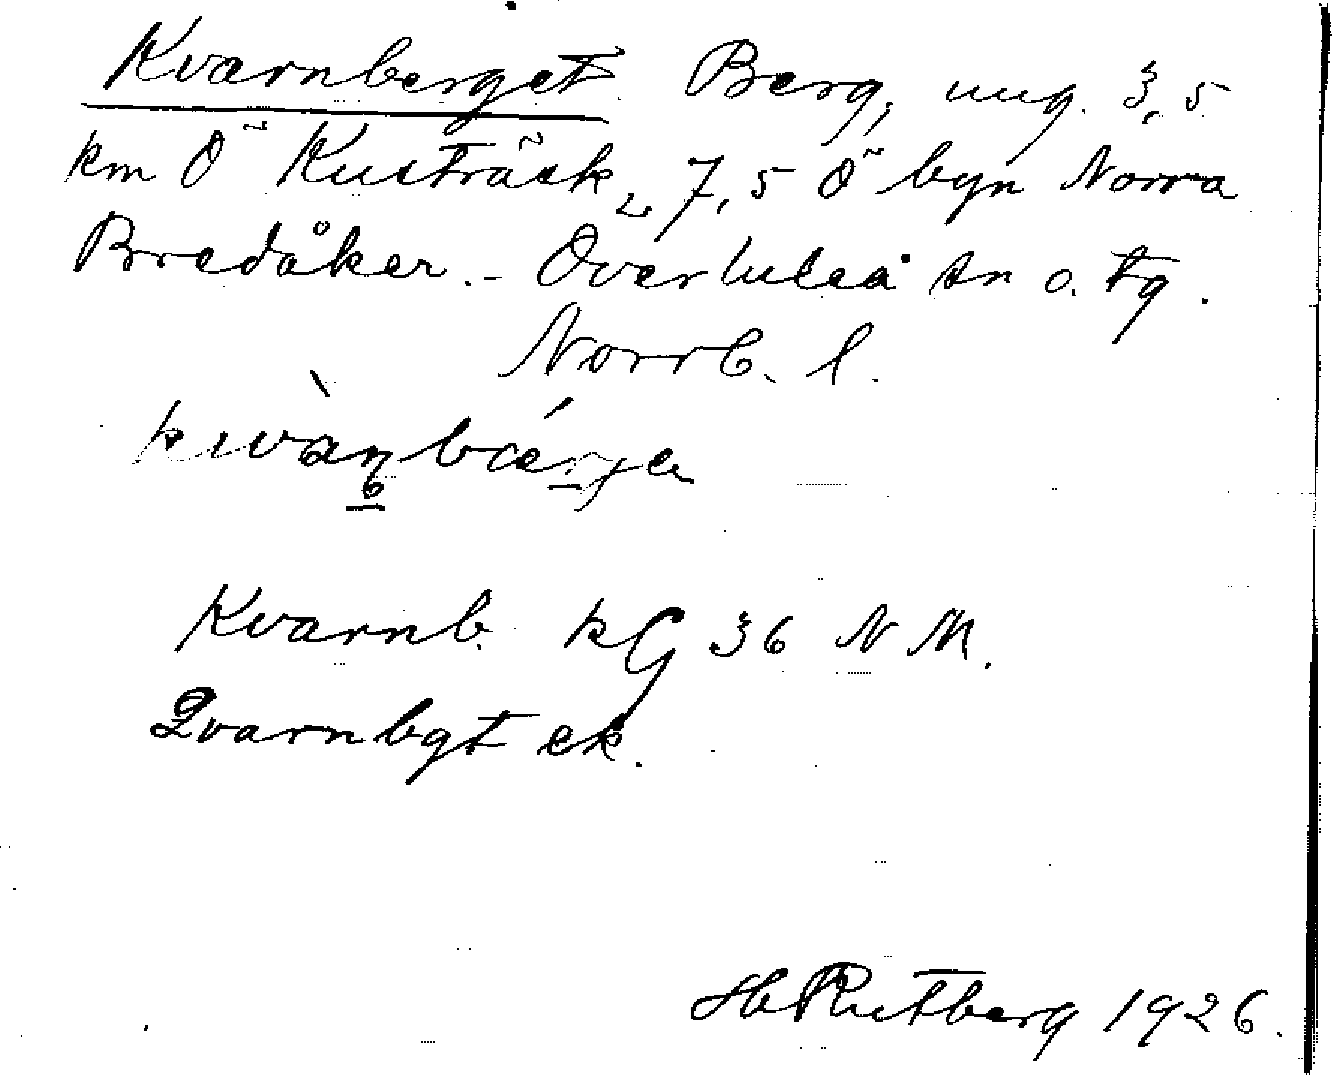 Kvarnberget Berg, ung. 3,5
km Ö Kusträsk, 7,5 Ö byn Norra
Bredåker. - Överluleå sn o. tg.
Norrb. l.
Kvarnb. kG 36 N M.
Qvarnbgt ek.
H Rutberg 1926.